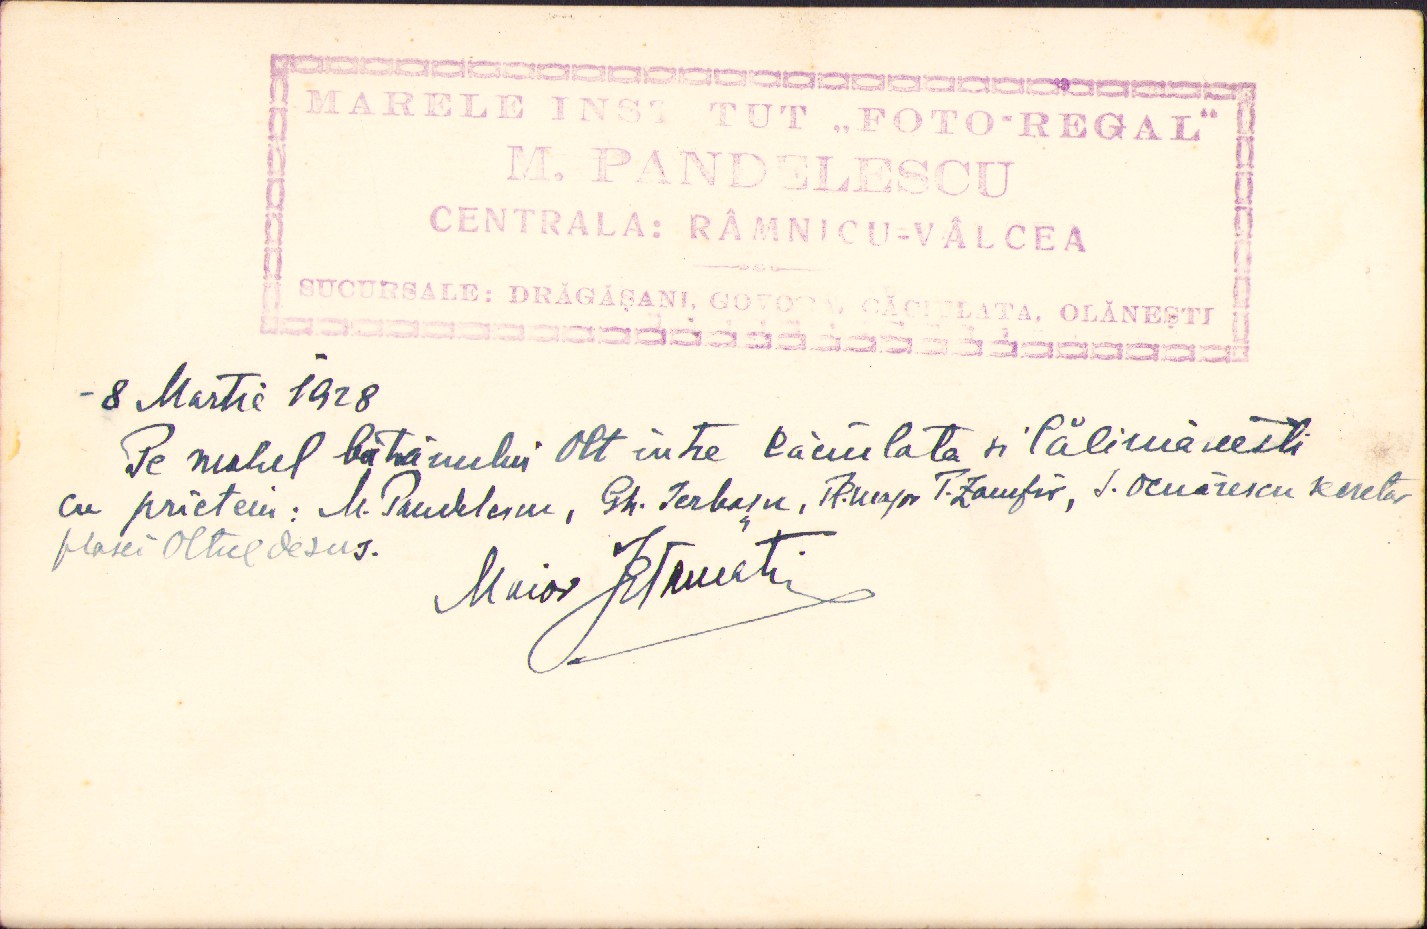 MARELE INSTITUT „FOTO-REGAL“
M. PANDELESCU
CENTRALA: RÂMNICU-VÂLCEA
SUCURSALE: DRĂGĂȘANI, GOVORA, CĂCIULATA, OLĂNEȘTI
-8 Martie 1928
Pe malul bătrânului Olt intre Căciulata si Călimănesti
cu prieteni: M. Pandelescu, Gh. Ierbașu, T. Zamfir, I. Ocnărescu secretar
plasei Oltul de sus.
Maior Stamati